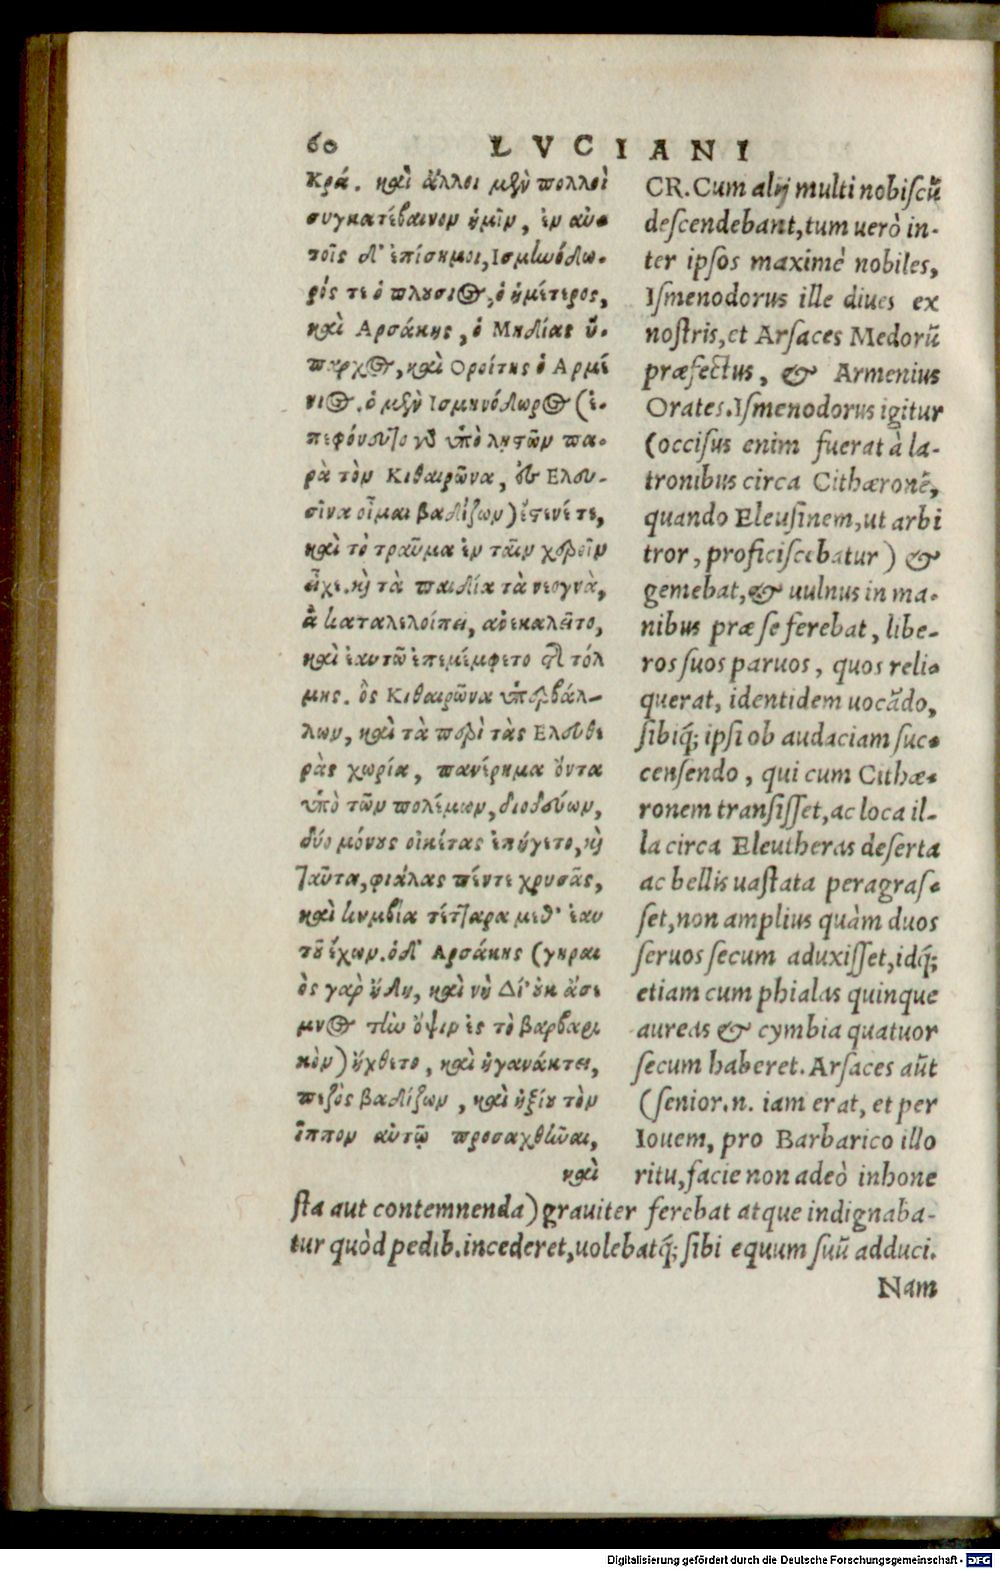 60 LVCIANI
Κρά. καὶ ἄλλοι μὲν πολλοὶ
συγκατέβαινον ἡμῖν, ἐν αὐ-
τοῖς δ' ἐπίσημοι, Ισμηνόδω-
ρός τε ὁ πλούσιος, ὁ ἡμέτερος,
καὶ Αρσάκης, ὁ Μηδίας ὕ-
παρχος, καὶ Οροίτης ὁ Αρμέ
νιος. ὁ μὲν Ισμηνόδωρος (ἐ-
πεφόνευτο γὰρ ὑπὸ λῃστῶν πα-
ρὰ τὸν Κιθαιρῶνα, ἐς Ελευ-
σῖνα οἶμαι βαδίζων) ἔστενέ τε,
καὶ τὸ τραῦμα ἐν ταῖν χεροῖν
εἶχε. καὶ τὰ παιδία τὰ νεογνὰ,
ἃ καταλελοίπει, ἀνεκαλεῖτο,
καὶ ἑαυτῷ ἐπεμέμφετο τῆς τόλ
μης. ὃς Κιθαιρῶνα ὑπερβάλ-
λων, καὶ τὰ περὶ τὰς Ελευθε
ρὰς χωρία, πανέρημα ὄντα
ὑπὸ τῶν πολέμων, διοδεύων,
δύο μόνους οἰκέτας ἐπήγετο, καὶ
ταῦτα, φιάλας πέντε χρυσᾶς,
καὶ κυμβία τέτταρα μεθ' ἑαυ
τοῦ ἔχων. ὁ δ' Αρσάκης (γηραι
ὸς γὰρ ἤδη, καὶ νὴ Δί' οὐκ ἄσε
μνος τὴν ὄψιν ἐς τὸ βαρβαρι
κὸν) ἤχθετο, καὶ ἠγανάκτει,
πεζὸς βαδίζων, καὶ ἠξίου τὸν
ἵππον αὐτῷ προσαχθῆναι,
καὶ
CR. Cum alij multi nobiscũ
descendebant, tum uerò in-
ter ipsos maximè nobiles,
Ismenodorus ille diues ex
nostris, et Arsaces Medorũ
præfectus, & Armenius
Orates. Ismenodorus igitur
(occisus enim fuerat à la-
tronibus circa Cithæronẽ,
quando Eleusinem, ut arbi
tror, proficiscebatur) &
gemebat, & uulnus in ma-
nibus præ se ferebat, libe-
ros suos paruos, quos reli-
querat, identidem uocãdo,
sibiq́; ipsi ob audaciam suc-
censendo, qui cum Cithæ-
ronem transisset, ac loca il-
la circa Eleutheras deserta
ac bellis uastata peragras-
set, non amplius quàm duos
seruos secum aduxisset, idq́;
etiam cum phialas quinque
aureas & cymbia quatuor
secum haberet. Arsaces aũt
(senior.n. iam erat, et per
Iouem, pro Barbarico illo
ritu, facie non adeò inhone
sta aut contemnenda) grauiter ferebat atque indignaba-
tur quòd pedib. incederet, uolebatq́; sibi equum suũ adduci.
Nam
Digitalisierung gefördert durch die Deutsche Forschungsgemeinschaft - DFG